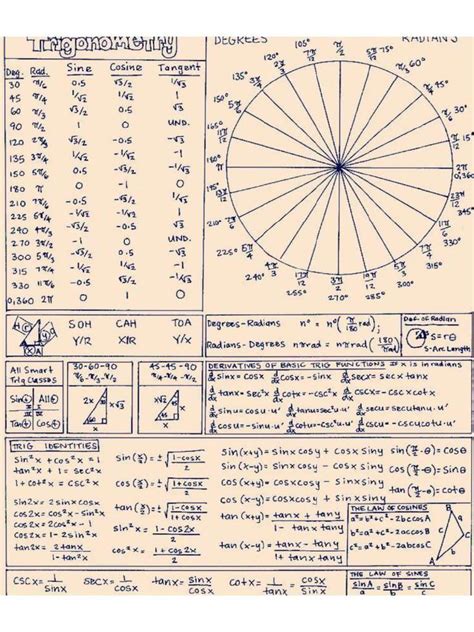 Trigonometry
Deg. Rad. Sine Cosine Tangent
30 π/6 0.5 √3/2 1/√3
45 π/4 1/√2 1/√2 1
60 π/3 √3/2 0.5 √3
90 π/2 1 0 UND.
120 2π/3 √3/2 -0.5 -√3
135 3π/4 1/√2 -1/√2 -1
150 5π/6 0.5 -√3/2
180 π 0 -1 0
210 7π/6 -0.5 -√3/2
225 5π/4 -1/√2 -1/√2 1
240 4π/3 -√3/2 -0.5 √3
270 3π/2 -1 0 UND.
300 5π/3 -√3/2 0.5 -√3
315 7π/4 -1/√2 1/√2 -1
330 11π/6 -0.5 √3/2
0,360 2π 0 1 0
DEGREES RADIANS
π/2
105° 7π/12 5π/12 75°
120° 2π/3 π/3 60°
135° 3π/4 π/4 45°
150° 5π/6 π/6 30°
165° 11π/12 π/12 15°
180° π 2π 0,360
195° 13π/12 23π/12
210° 7π/6 11π/6 330°
225° 5π/4 7π/4 315°
240° 4π/3 5π/3 300°
255° 17π/12 3π/2 19π/12 285°
270°
SOH CAH TOA
Y/R X/R Y/X
Degrees-Radians n° = n° (π/180 rad);
Radians-Degrees nπrad = nπrad (180/πrad)
Def. of Radian
S=rθ
S-Arc Length
All Smart Trig Classes
Sin All
Tan Cos
30-60-90
π/6-π/3-π/2
2x x√3
x
45-45-90
π/4-π/4-π/2
x
x
DERIVATIVES OF BASIC TRIG FUNCTIONS x is in radians
d/dx sinx = cosx d/dx cosx = -sinx d/dx secx = secx tanx
d/dx tanx = sec²x d/dx cotx = -csc²x d/dx cscx = -cscx cotx
d/dx sinu = cosu·u' d/dx tanu = sec²u·u' d/dx secu = secutanu·u'
d/dx cosu = -sinu·u' d/dx cotu = -csc²u·u' d/dx cscu = -cscucotu·u'
TRIG IDENTITIES
sin²x + cos²x = 1
tan²x + 1 = sec²x
1 + cot²x = csc²x
sin2x = 2sinxcosx
cos2x = cos²x - sin²x
cos2x = 2cos²x - 1
cos2x = 1 - 2sin²x
tan2x = 2tanx / 1 - tan²x
sin(x/2) = ±√1-cosx/2
cos(x/2) = ±√1+cosx/2
tan(x/2) = ±√1-cosx/1+cosx
sin²x = 1-cos2x/2
cos²x = 1+cos2x/2
sin(x+y) = sinxcosy + cosxsiny
sin(x-y) = sinxcosy - cosxsiny
cos(x+y) = cosxcosy - sinxsiny
cos(x-y) = cosxcosy + sinxsiny
tan(x+y) = tanx + tany / 1 - tanxtany
tan(x-y) = tanx - tany / 1 + tanxtany
sin(π/2-θ) = cosθ
cos(π/2-θ) = sinθ
tan(π/2-θ) = cotθ
THE LAW OF COSINES
a² = b² + c² - 2bccosA
b² = a² + c² - 2accosB
c² = a² + b² - 2abcosC
B
c a
A b C
cscx = 1/sinx secx = 1/cosx tanx = sinx/cosx cotx = 1/tanx = cosx/sinx
THE LAW OF SINES
sinA/a = sinB/b = sinC/c